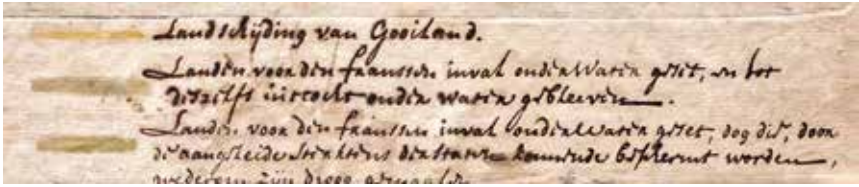 Landschijding van Gooiland.
Landen voor den franssen inval onder Water geset, en tot
onder water gebleeven.
Landen voor den franssen inval onder Water geset, dog die, door
de aangeleide kennende beschermt worden,
wederom zijn droog gemaalen